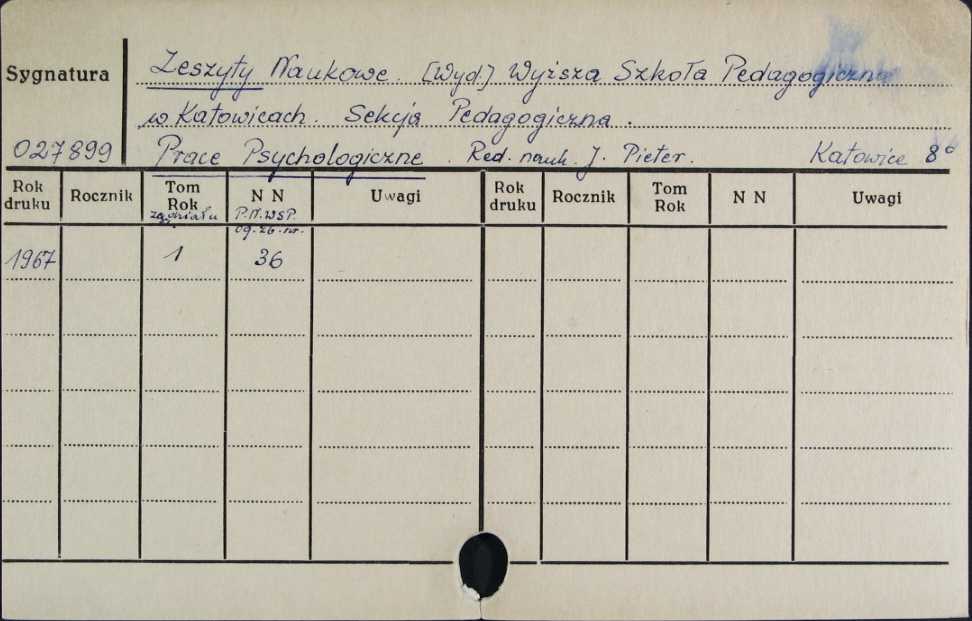 Sygnatura
Zeszyty Naukowe. [Wyd.] Wyższa Szkoła Pedagogiczna
w Katowicach. Sekcja Pedagogiczna.
027899 Prace Psychologiczne. Red. nauk. J. Pieter. Katowice 8°
Rok druku Rocznik Tom Rok N N Uwagi Rok druku Rocznik Tom Rok N N Uwagi
P.N.WSP.
og. zb. nr.
1967 1 36